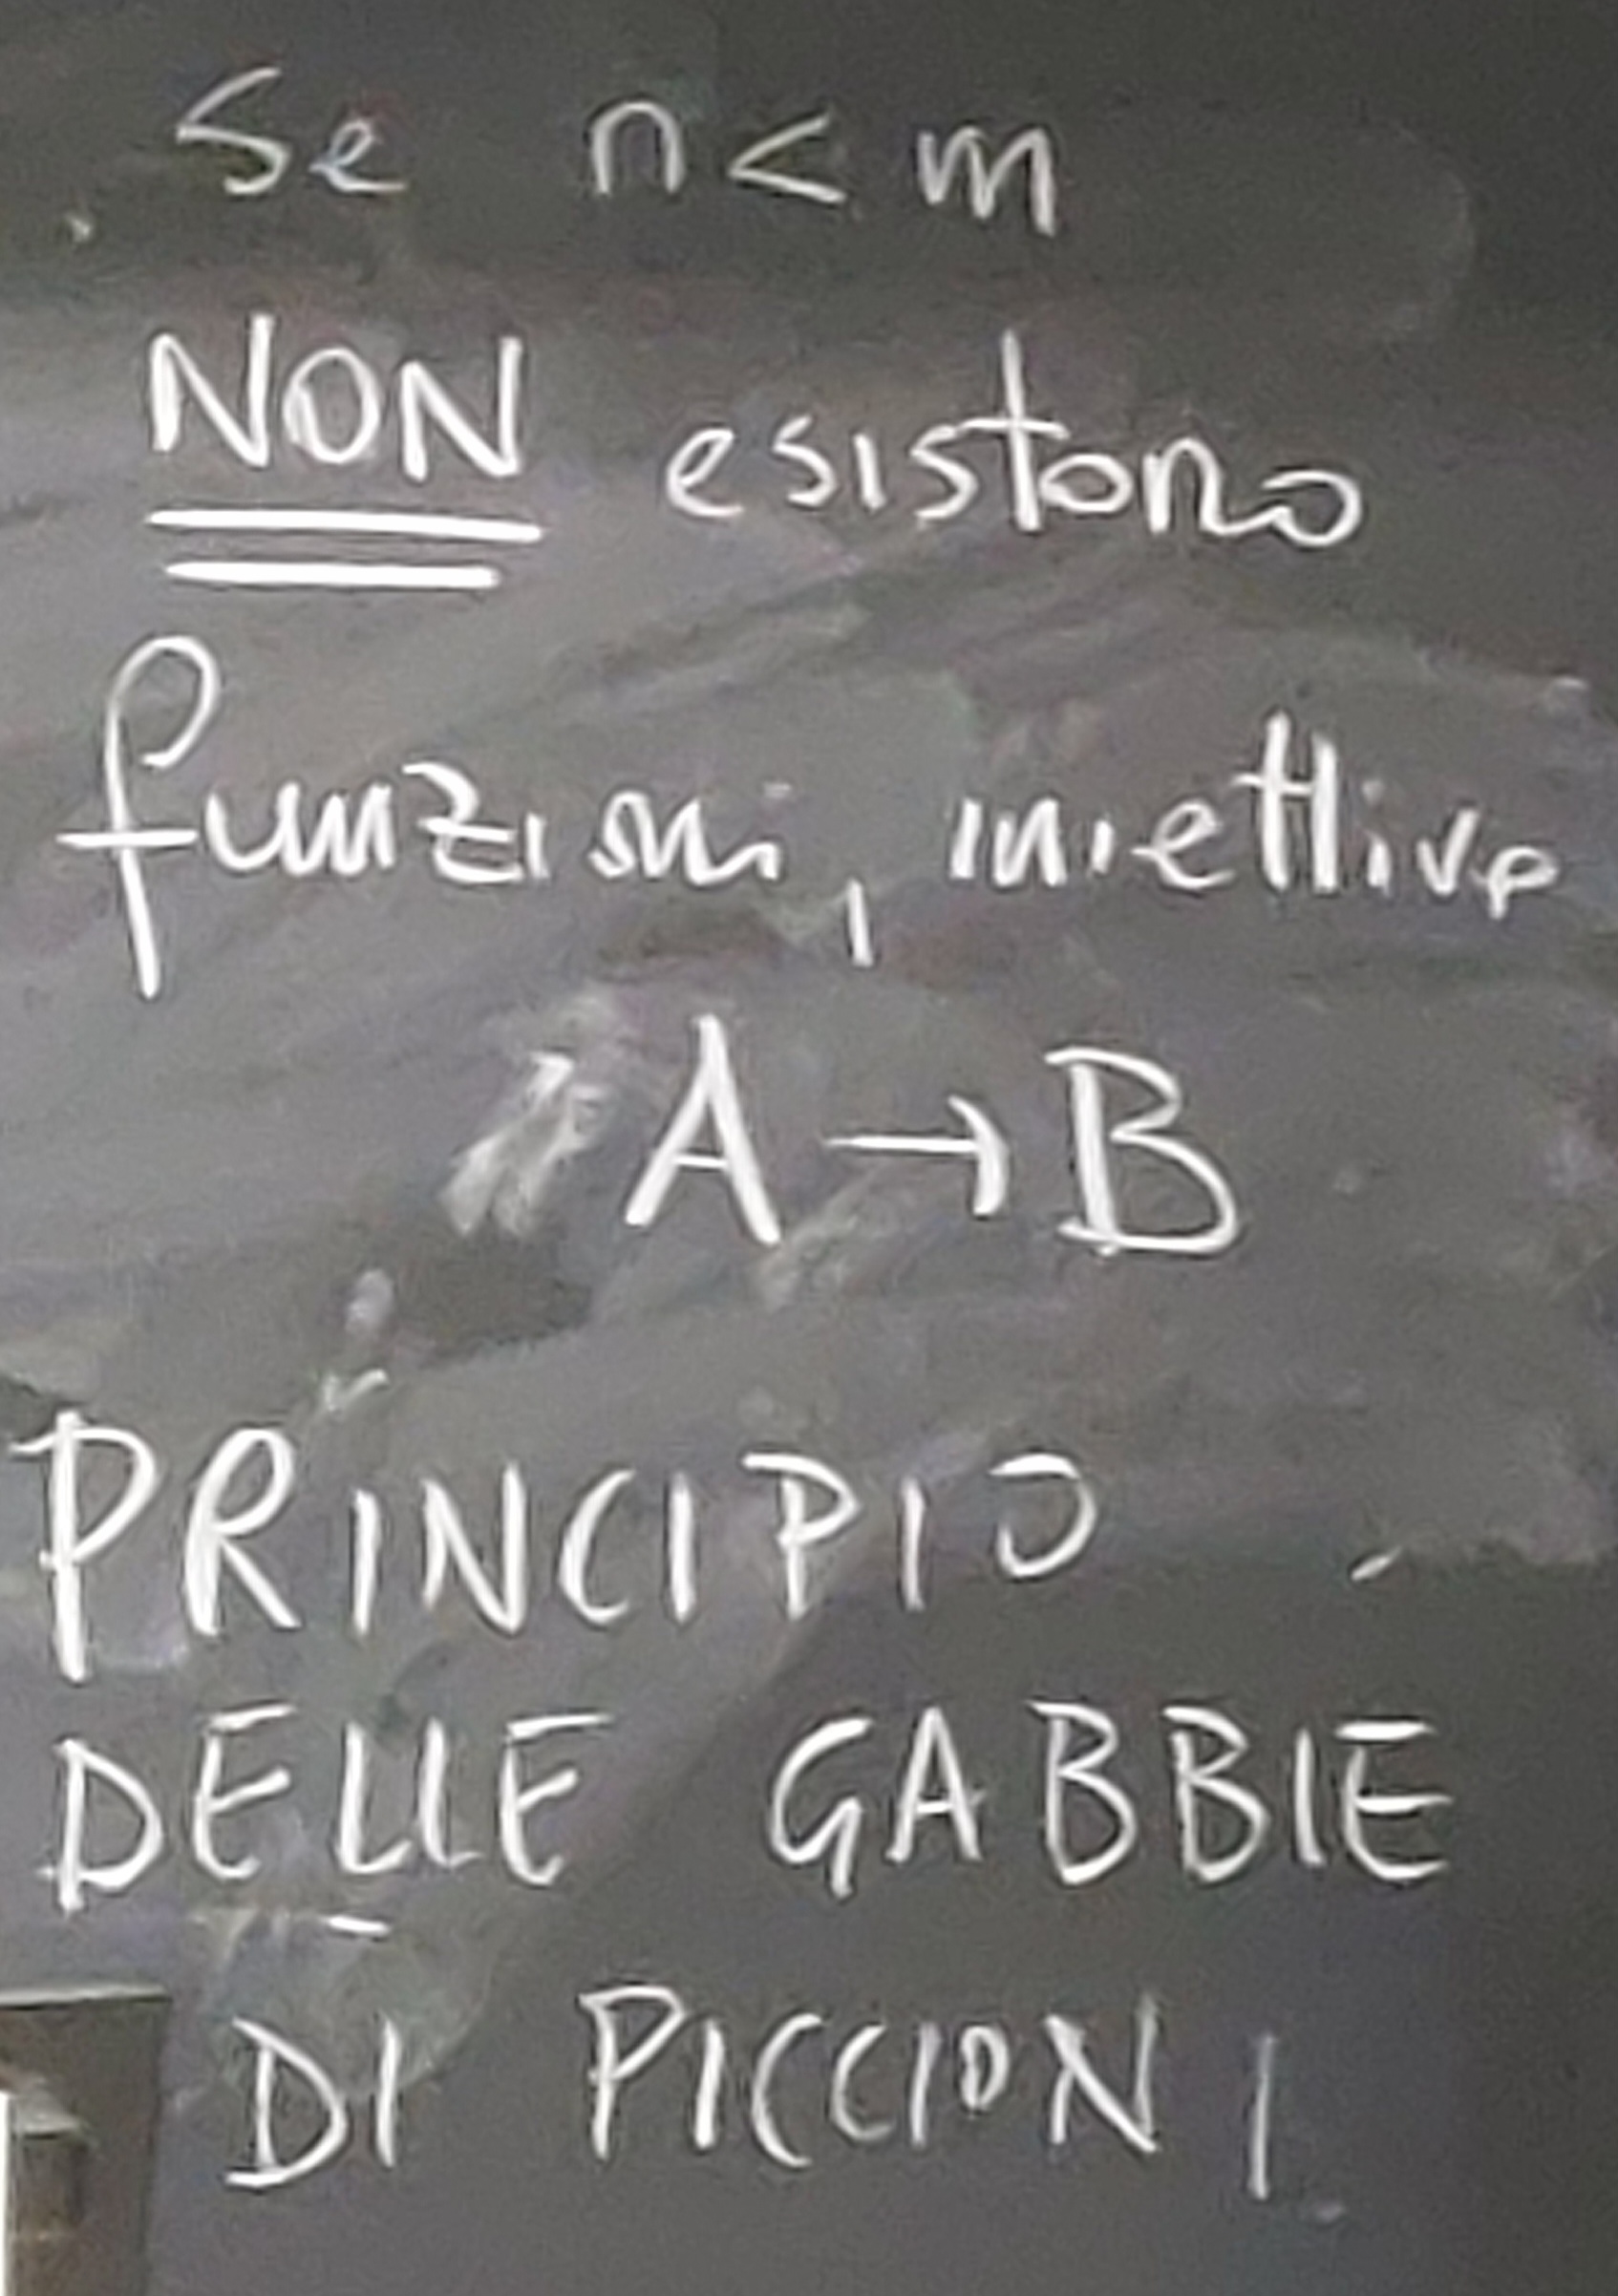 Se n < m
NON esistono
funzioni, iniettive
A → B
PRINCIPIO
DELLE GABBIE
DI PICCIONI